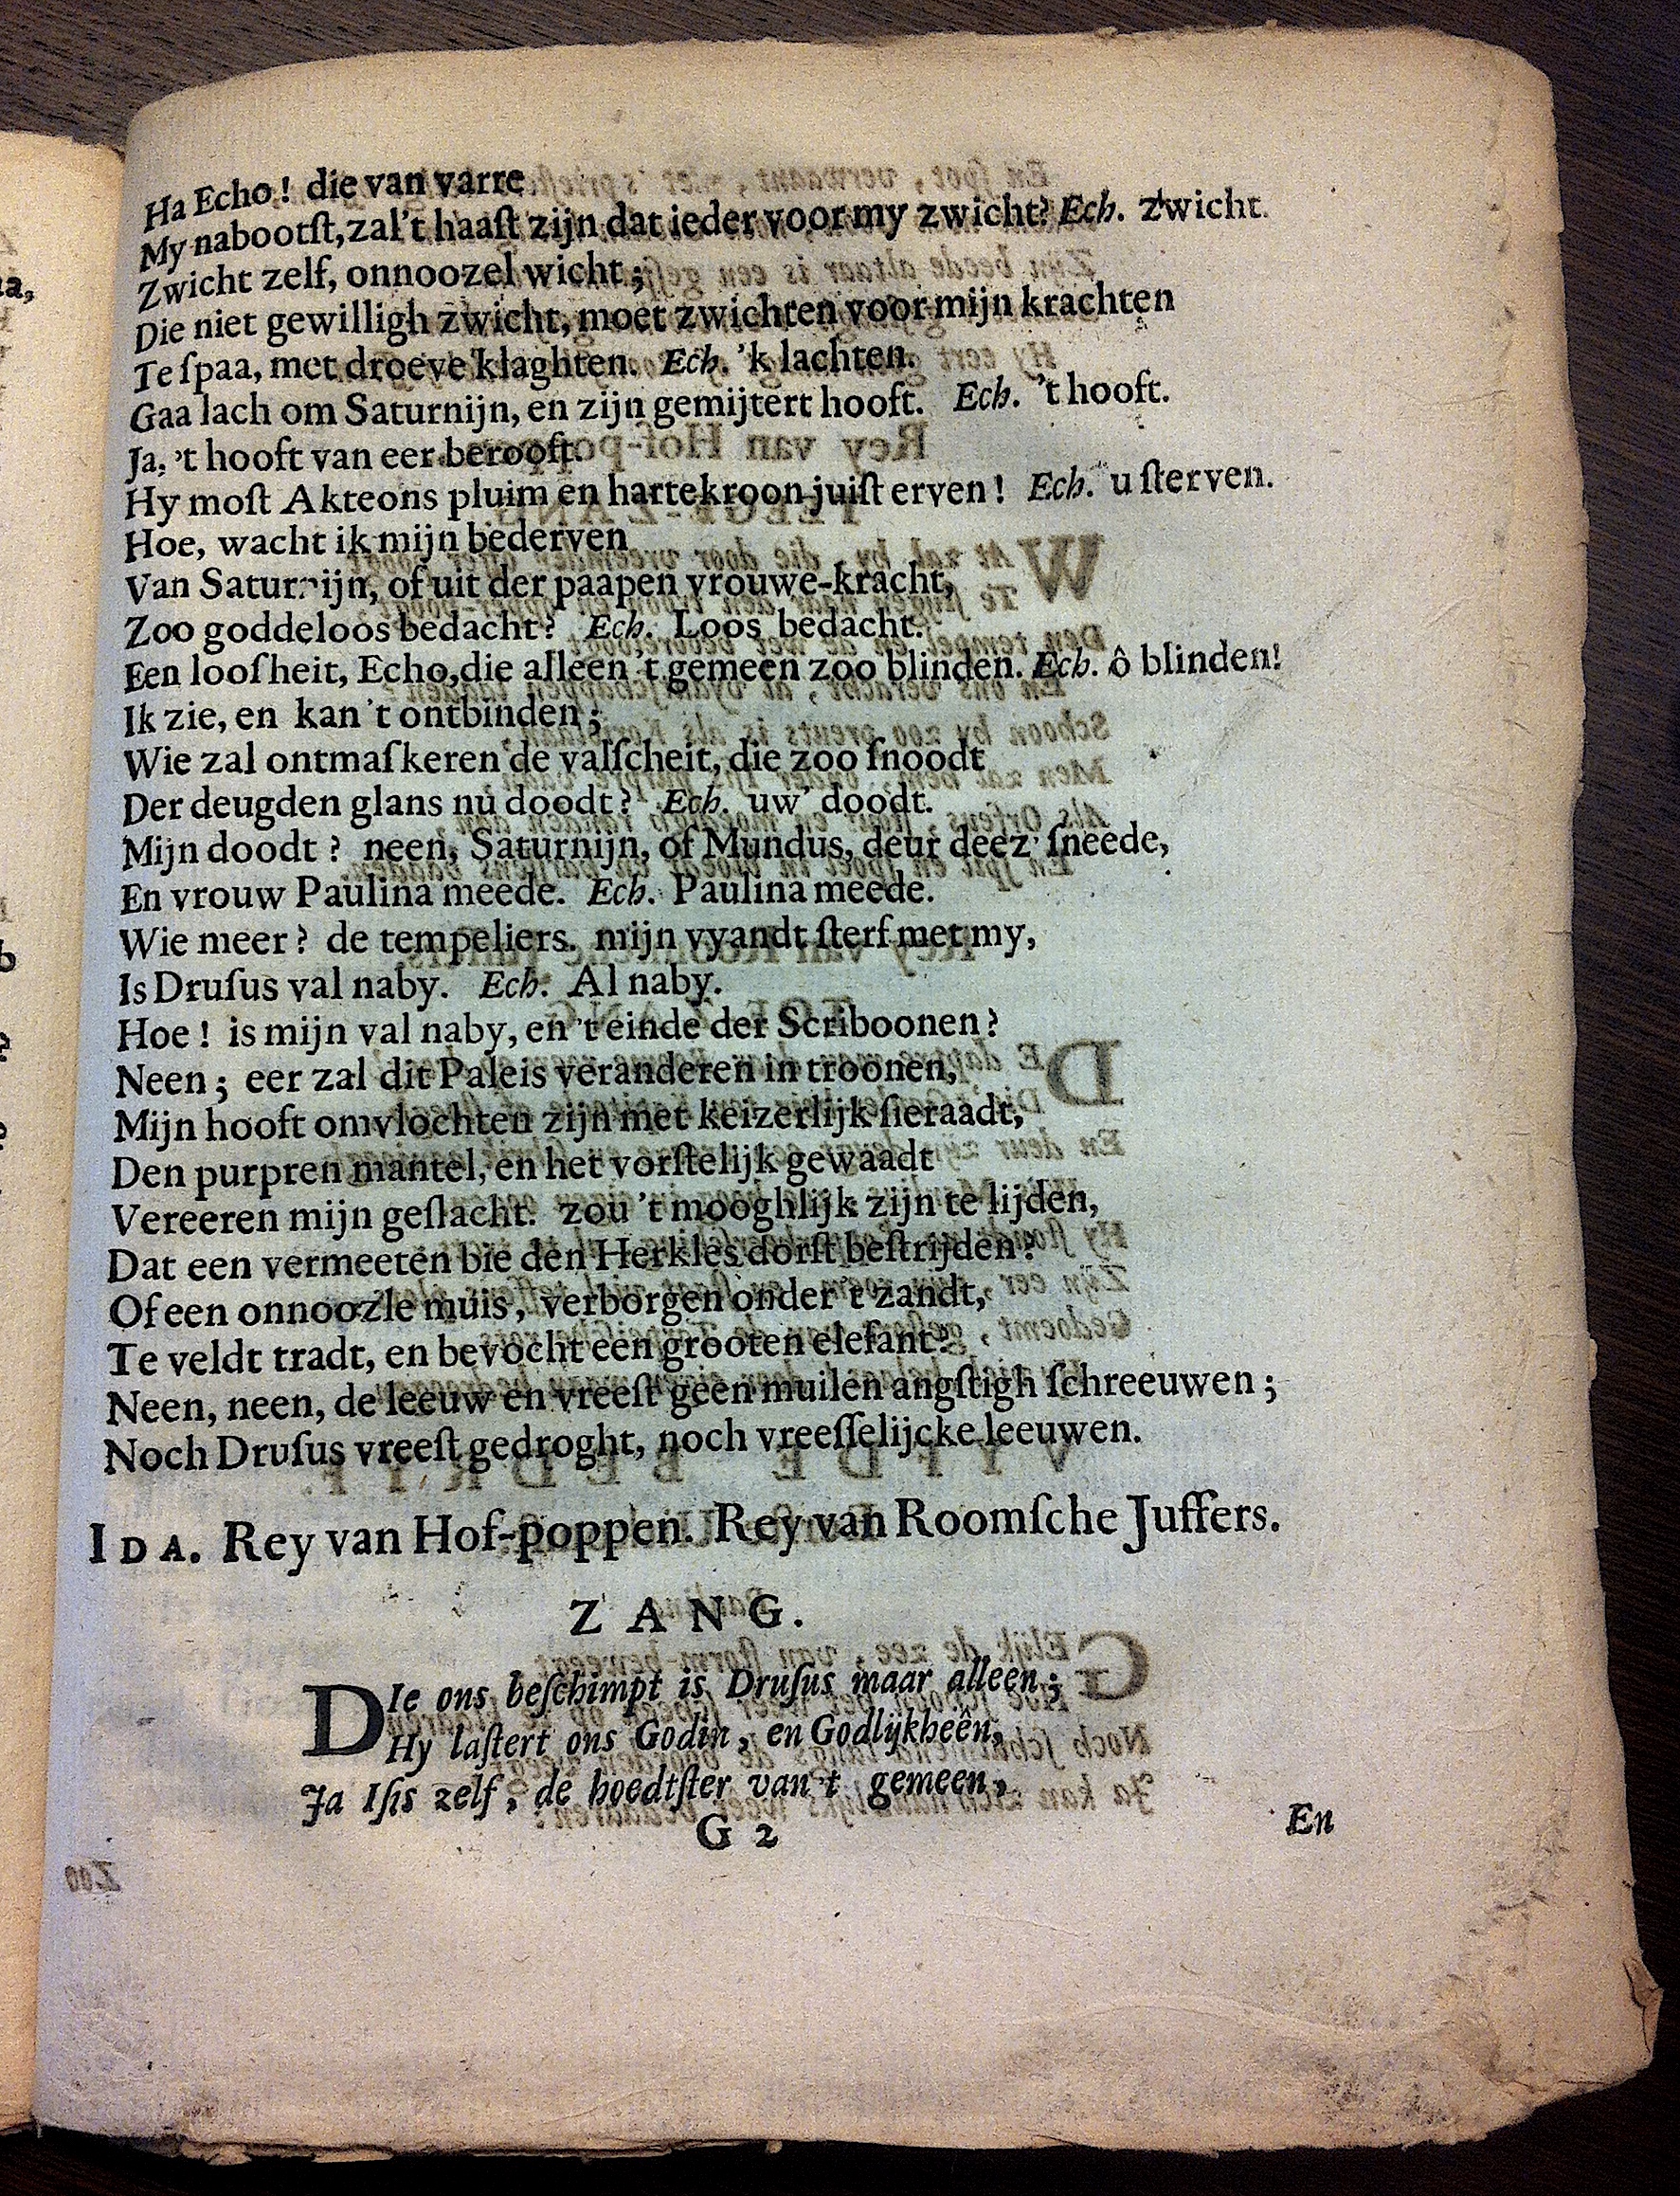 Ha Echo! die van varre
My nabootſt, zal 't haaſt zijn dat ieder voor my zwicht? Ech. zwicht.
Zwicht zelf, onnoozel wicht;
Die niet gewilligh zwicht, moet zwichten voor mijn krachten
Te ſpaa, met droeve klaghten. Ech. 'k lachten.
Gaa lach om Saturnijn, en zijn gemijtert hooft. Ech. 't hooft.
Ja, 't hooft van eer berooft.
Hy moſt Akteons pluim en hartekroon juiſt erven! Ech. u ſterven.
Hoe, wacht ik mijn bederven
Van Saturnijn, of uit der paapen vrouwe-kracht,
Zoo goddeloos bedacht? Ech. Loos bedacht.
Een loosheit, Echo, die alleen 't gemeen zoo blinden. Ech. ô blinden!
Ik zie, en kan 't ontbinden;
Wie zal ontmaſkeren de valſcheit, die zoo ſnoodt
Der deugden glans nu doodt? Ech. uw' doodt.
Mijn doodt? neen, Saturnijn, of Mundus, deur deez' ſneede,
En vrouw Paulina meede. Ech. Paulina meede.
Wie meer? de tempeliers. mijn vyandt ſterf met my,
Is Druſus val naby. Ech. Al naby.
Hoe! is mijn val naby, en 't einde der Scriboonen?
Neen; eer zal dit Paleis veranderen in troonen,
Mijn hooft omvlochten zijn met keizerlijk ſieraadt,
Den purpren mantel, en het vorſtelijk gewaadt
Vereeren mijn geſlacht. zou 't mooghlijk zijn te lijden,
Dat een vermeeten bie den Herkles dorſt beſtrijden?
Of een onnoozle muis, verborgen onder 't zandt,
Te veldt tradt, en bevocht een grooten elefant?
Neen, neen, de leeuw en vreeſt geen muilen angſtigh ſchreeuwen;
Noch Druſus vreeſt gedroght, noch vreeſſelijcke leeuwen.
IDA. Rey van Hof-poppen. Rey van Roomſche Juffers.
ZANG.
DIe ons beſchimpt is Druſus maar alleen;
Hy laſtert ons Godin, en Godlijkheên,
Ja Iſis zelf, de hoedtſter van 't gemeen,
G 2
En